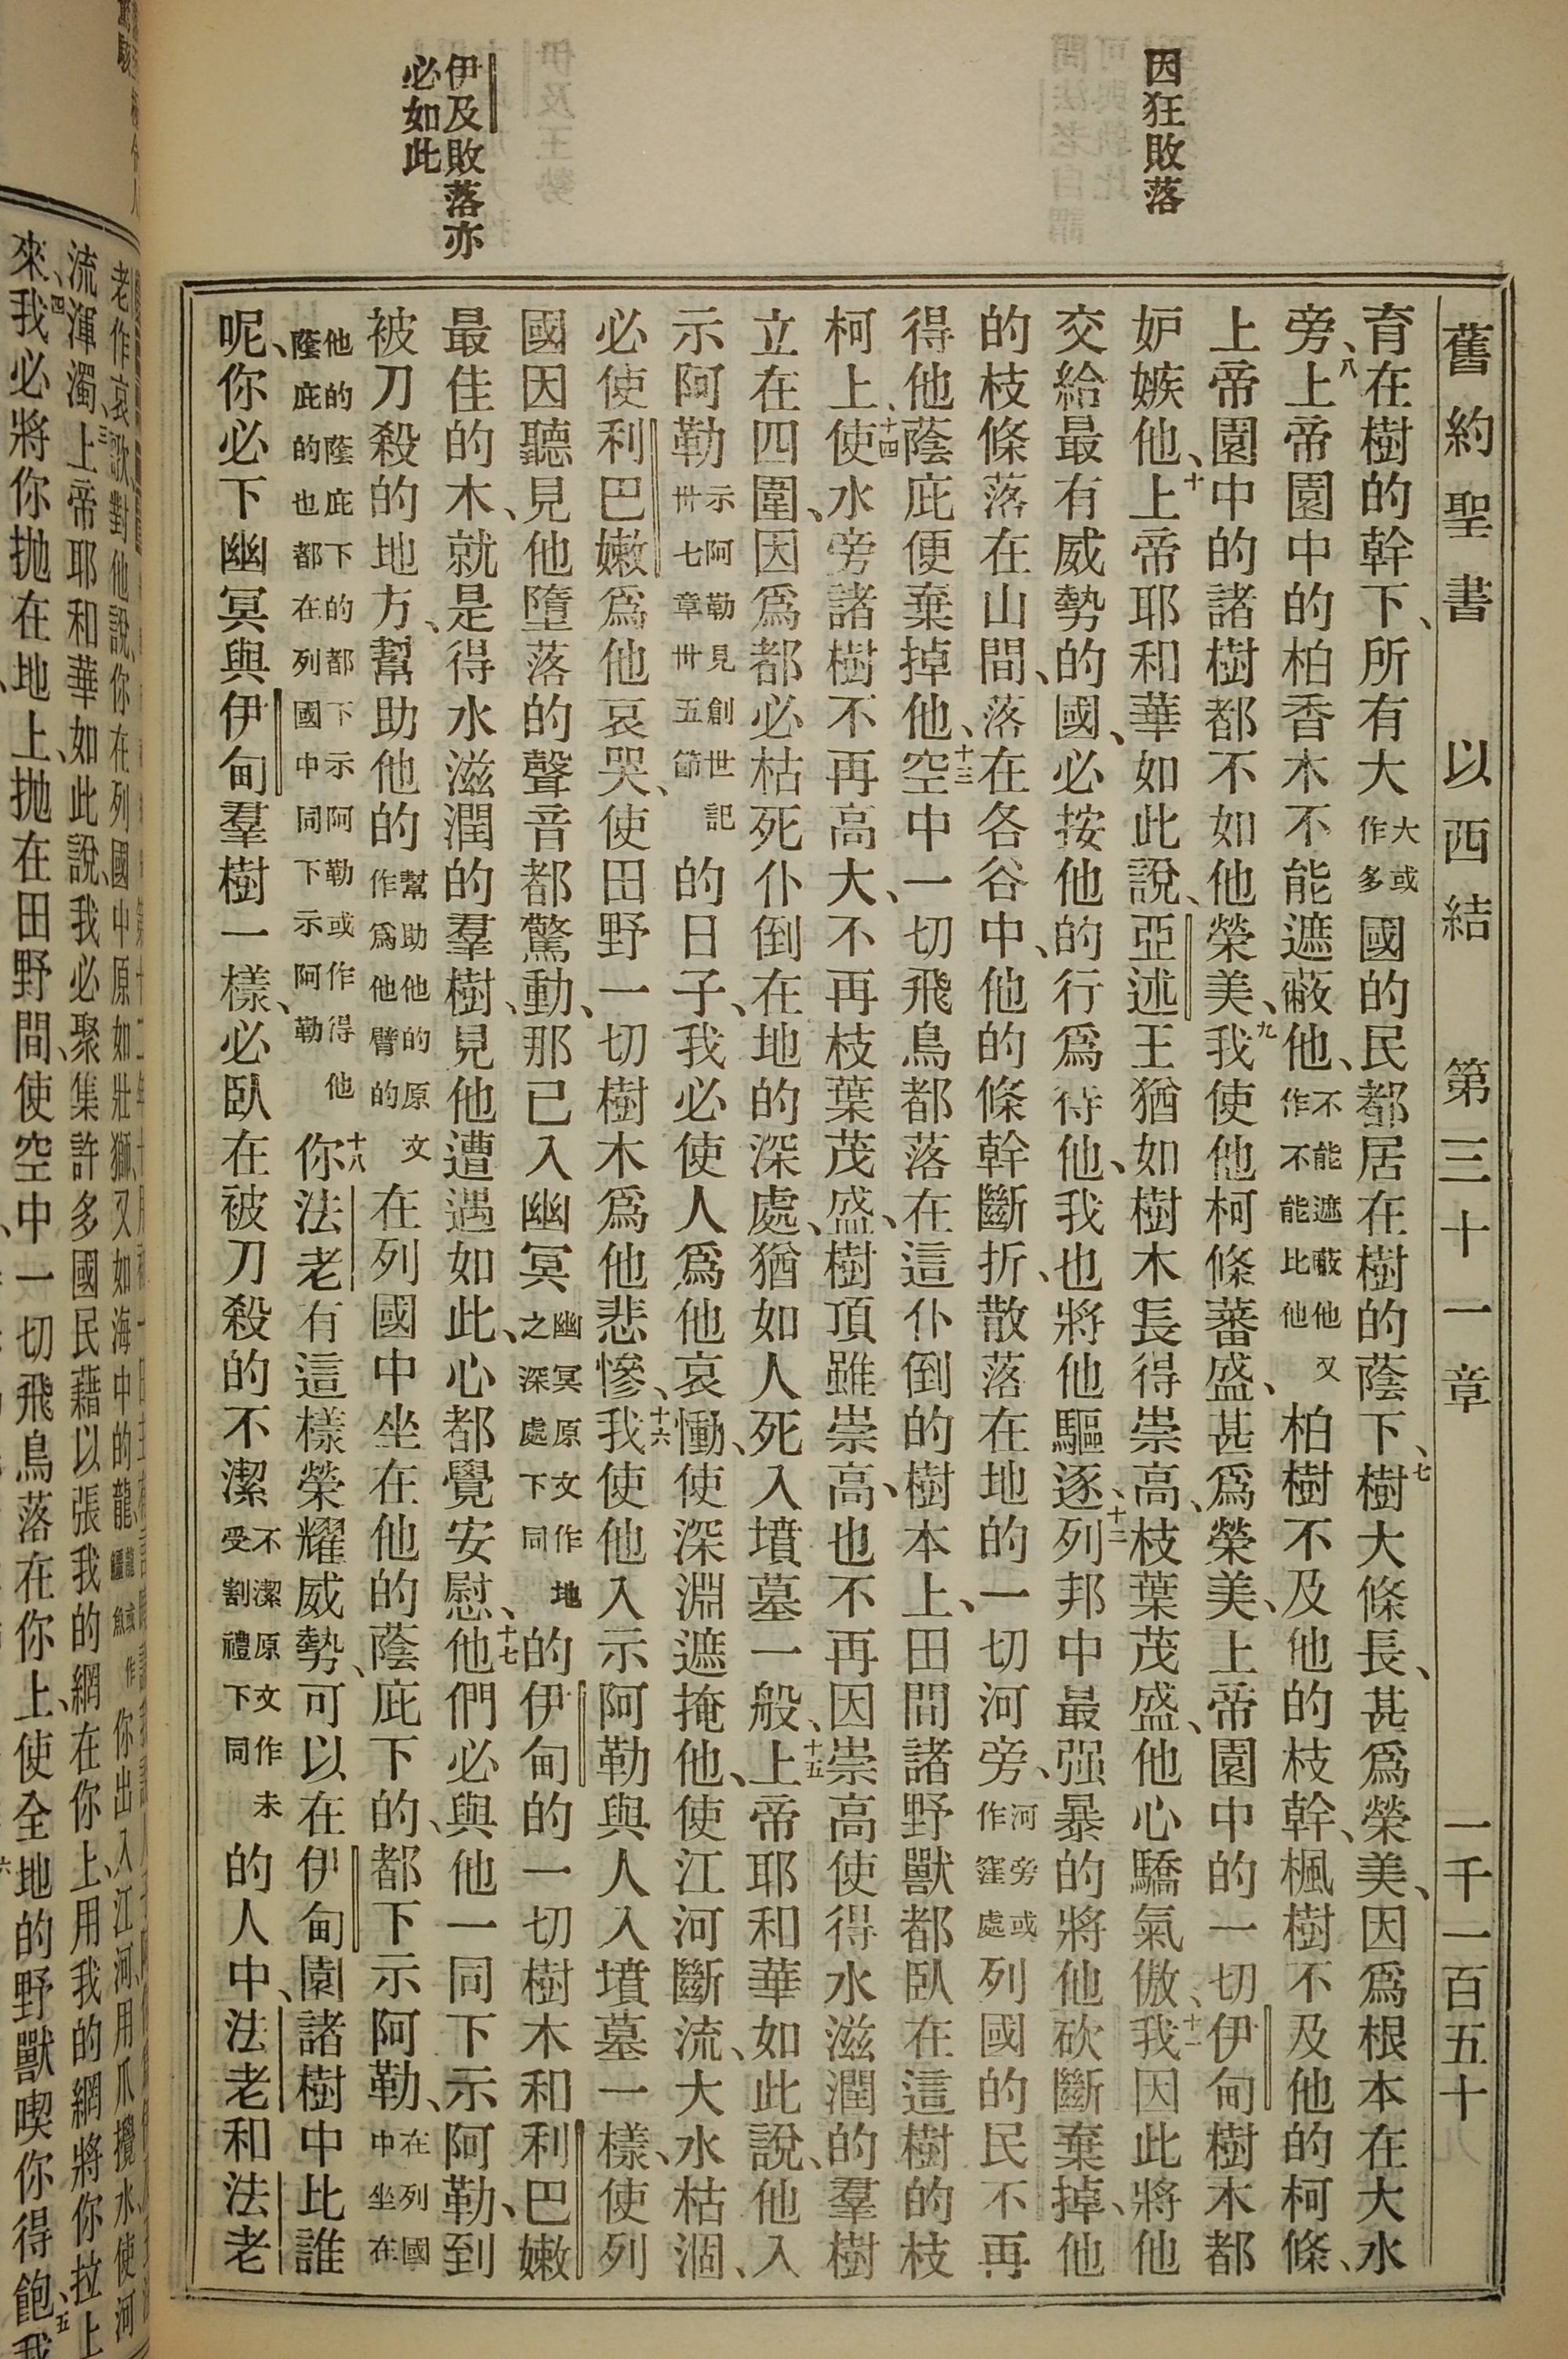 因狂敗落
伊及敗落亦
必如此
舊約聖書 以西結 第三十一章 一千一百五十
育在樹的幹下、所有大大或作多國的民都居在樹的蔭下、七樹大條長、甚爲榮美、因爲根本在大水
旁、八上帝園中的柏香木不能遮蔽他、不能遮蔽他又作不能比他柏樹不及他的枝幹、楓樹不及他的柯條、
上帝園中的諸樹都不如他榮美、九我使他柯條蕃盛、甚爲榮美、上帝園中的一切伊甸樹木都
妒嫉他、十上帝耶和華如此說、亞述王猶如樹木長得崇高、枝葉茂盛、他心驕氣傲、十一我因此將他
交給最有威勢的國、必按他的行爲待他、我也將他驅逐、十二列邦中最强暴的將他砍斷棄掉、他
的枝條落在山間、落在各谷中、他的條幹斷折、散落在地的一切河旁、河旁或作窪處列國的民不再
得他蔭庇便棄掉他、十三空中一切飛鳥都落在這仆倒的樹本上、田間諸野獸都臥在這樹的枝
柯上、十四使水旁諸樹不再高大、不再枝葉茂盛、樹頂雖崇高、也不再因崇高使得水滋潤的羣樹
立在四圍、因爲都必枯死仆倒在地的深處、猶如人死入墳墓一般、十五上帝耶和華如此說、他入
示阿勒示阿勒見創世記卅七章卅五節的日子、我必使人爲他哀慟、使深淵遮掩他、使江河斷流、大水枯涸、
必使利巴嫩爲他哀哭、使田野一切樹木爲他悲慘、十六我使他入示阿勒與人入墳墓一樣、使列
國因聽見他墮落的聲音都驚動、那已入幽冥幽冥原文作地之深處下同的伊甸的一切樹木和利巴嫩
最佳的木、就是得水滋潤的羣樹、見他遭遇如此、心都覺安慰、十七他們必與他一同下示阿勒、到
被刀殺的地方、幫助他的幫助他的原文作爲他臂的在列國中坐在他的蔭庇下的、都下示阿勒、在列國中坐在
他的蔭庇下的都下示阿勒或作得他蔭庇的也都在列國中同下示阿勒十八你法老有這樣榮耀威勢、可以在伊甸園諸樹中比誰
呢、你必下幽冥與伊甸羣樹一樣、必臥在被刀殺的不潔不潔原文作未受割禮下同的人中、法老和法老
老作哀歌對他說、你在列國中原如壯獅、又如海中的龍、龍或作鱷魚你出入江河、用爪攪水、使河
流渾濁、三上帝耶和華如此說、我必聚集許多國民藉以張我的網在你上、用我的網將你拉上
來、四我必將你拋在地上、拋在田野間、使空中一切飛鳥落在你上、使全地的野獸喫你得飽、五我